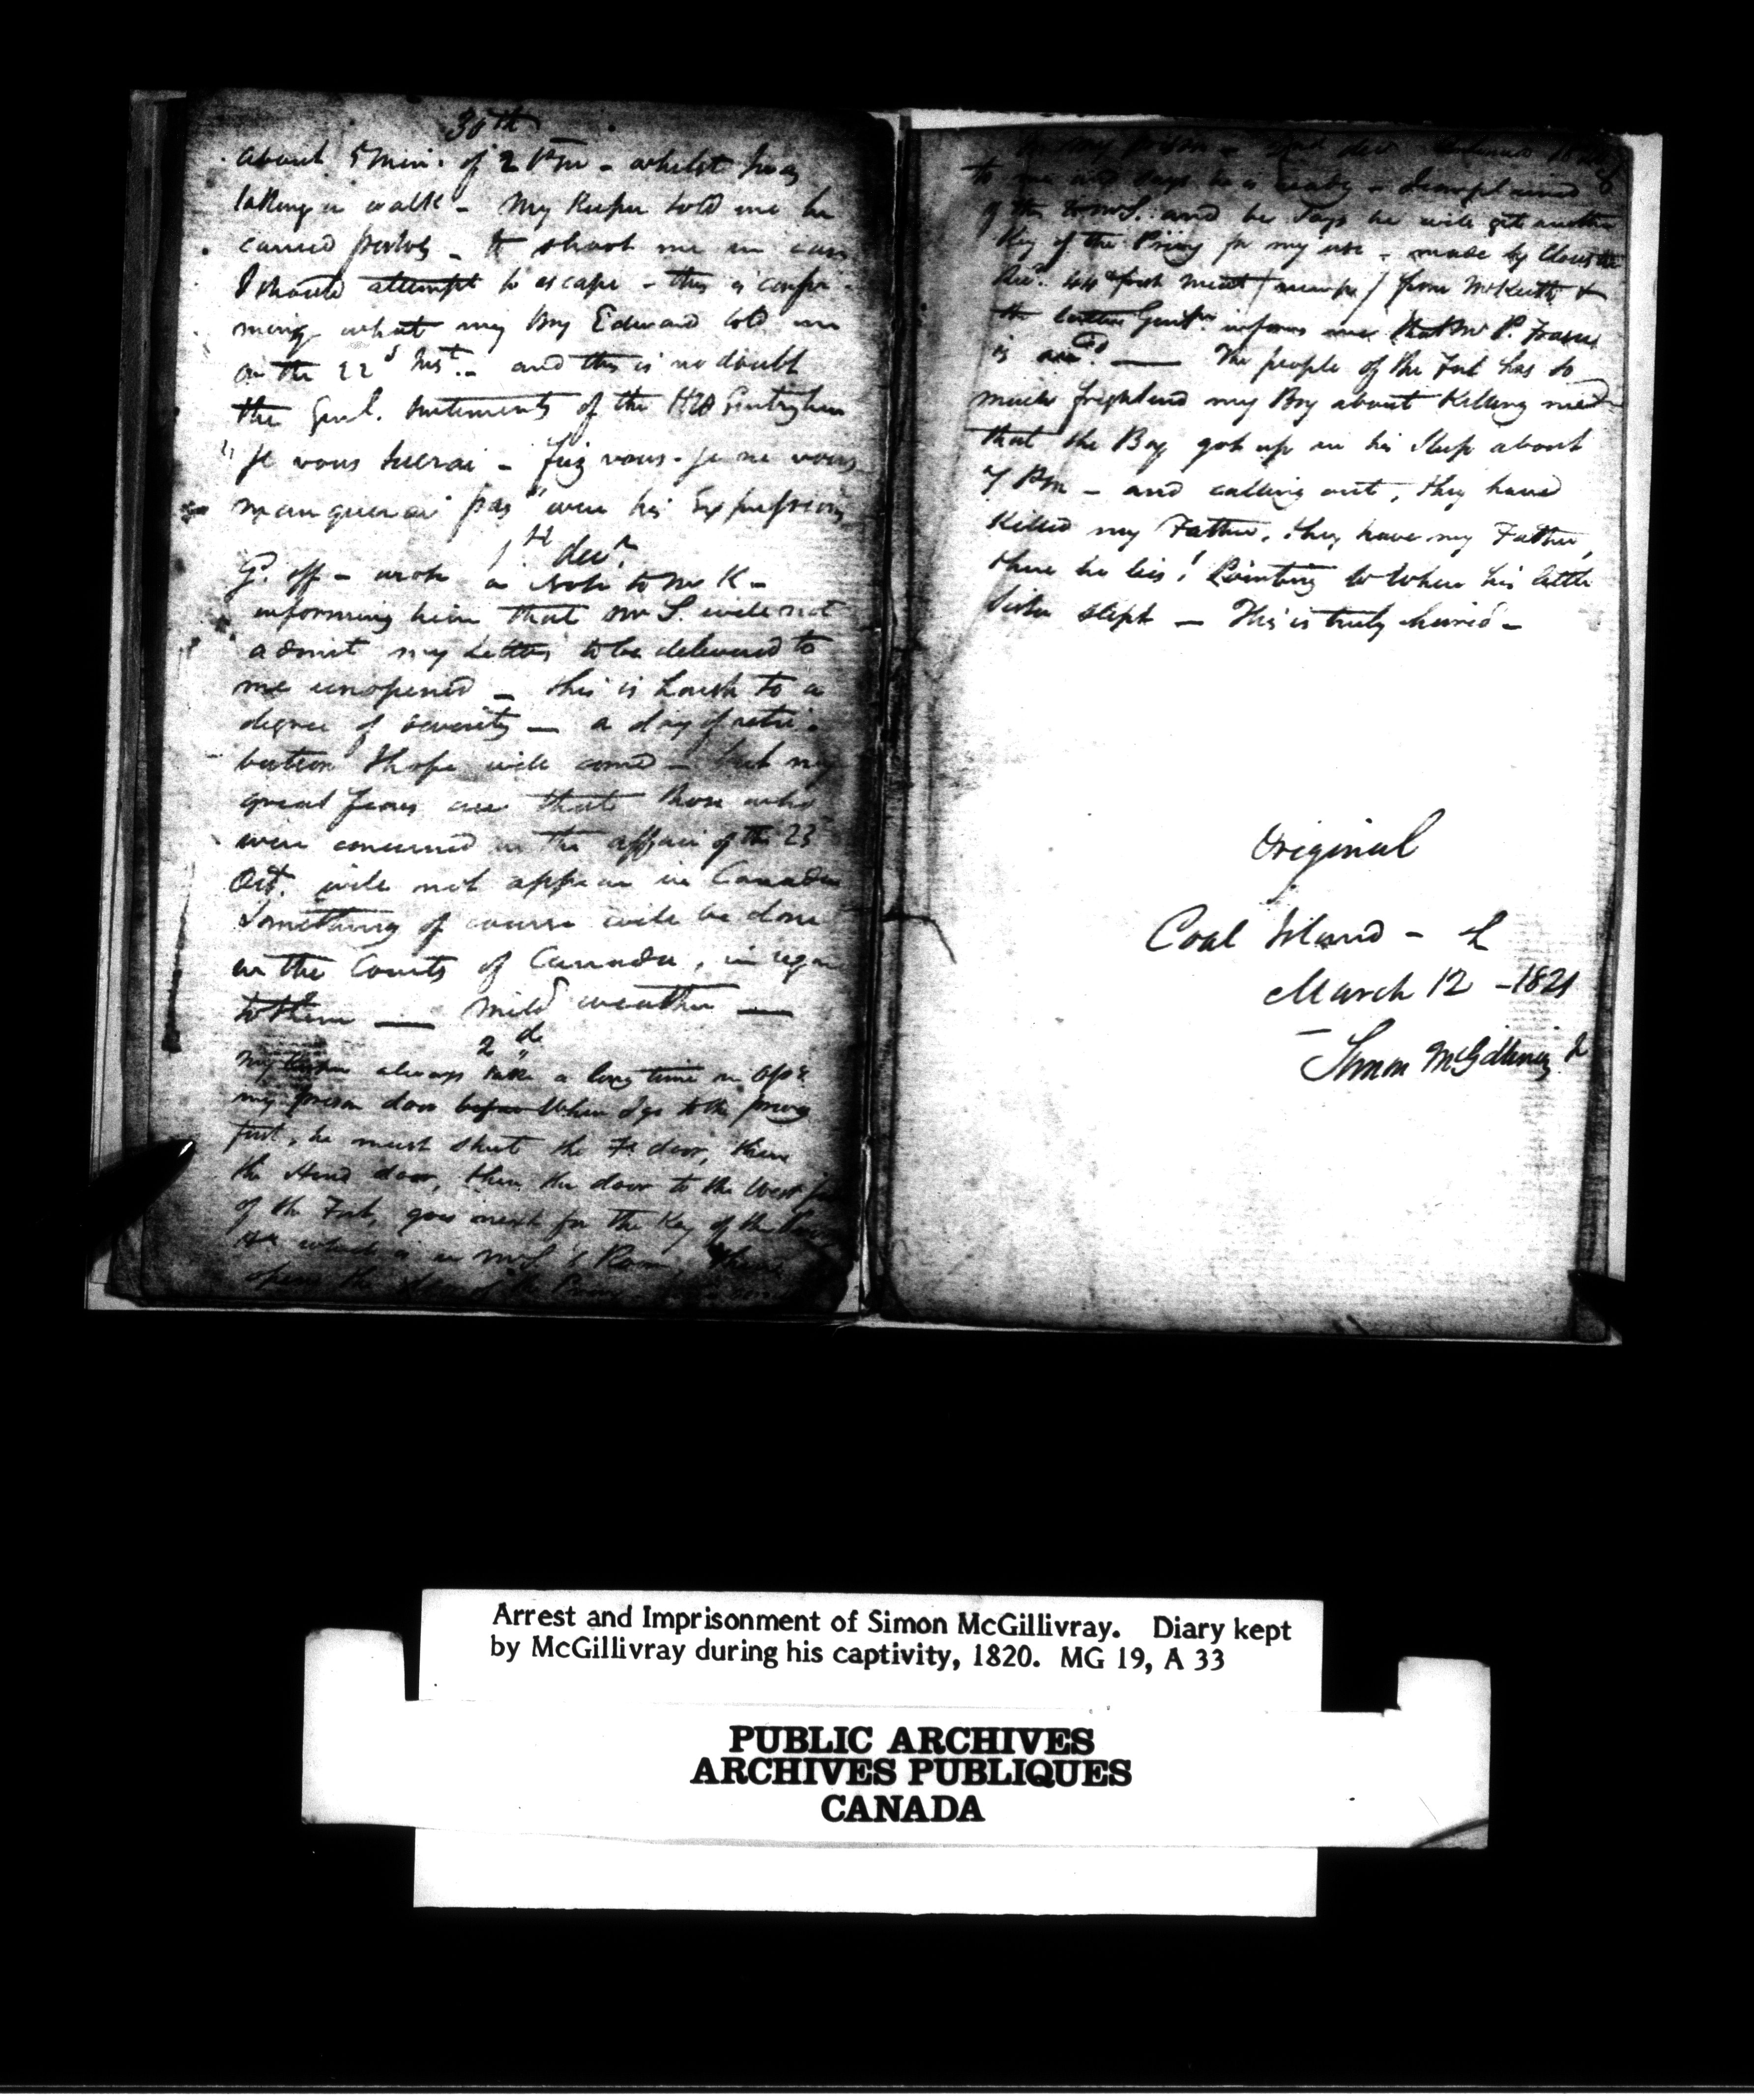 30th
about 5 Min: of 2 P.m - whilst I was
taking a walk - My Keeper told me he
carried pistols - to shoot me in case
I should attempt to escape - this is confir-
ming what my Boy Edward told me
on the 22d Inst. - and this is no doubt
the Genl. Sentiments of the HB Gentrymen
"Je vous tuerai - fuiz vous - je ne vous
manquerai pas" were his Expressions
1st decr
G. off - wrote a Note to Mr K -
informing him that Mr S. will not
admit my Letters to be delivered to
me unopened - this is harsh to a
degree of severity - a day of retri-
bution I hope will come - but my
great fears are that those who
were concerned in the affair of the 23
Oct. will not appear in Canada
Something of course will be done
in the Courts of Canada, in regard
to them — mild weather —
2d
My Keeper always take a long time in opg
my prison door before When I go to the privy
first, he must shut the door, then
the door, then the door to the West
of the Fort, goes next for the Key of the
which is in Mr S's Room, then
opens the door of the Privy
my prison - 2nd decr
to me and says he is ready - I complained
of this to Mr S. and he says he will get another
Key of the Privy for my use - made by
Recd. fresh meat from McKeith &
the latter Gentn. informs me that Mr P. Fraser
is — The people of the Fort has so
much frightend my Boy about Killing me
that the Boy got up in his Sleep about
7 P.m - and calling out, they have
Killed my Father, they have my Father,
there he lies! Pointing to where his little
Sister slept — This is truly horrid -
Original
Coal Island -
March 12 - 1821
Simon McGillivray
Arrest and Imprisonment of Simon McGillivray. Diary kept
by McGillivray during his captivity, 1820. MG 19, A 33
PUBLIC ARCHIVES
ARCHIVES PUBLIQUES
CANADA